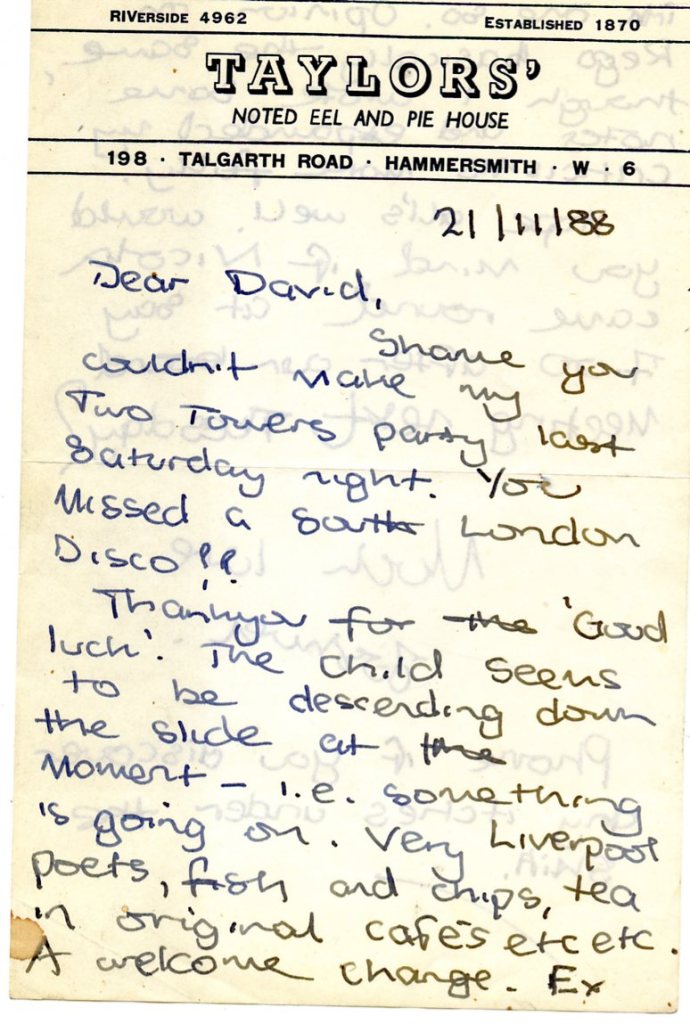 RIVERSIDE 4962 ESTABLISHED 1870
TAYLORS'
NOTED EEL AND PIE HOUSE
198 · TALGARTH ROAD · HAMMERSMITH · W · 6
21/11/88
Dear David,
Shame you
couldn't make my
Two Towers party last
Saturday night. You
Missed a South London
Disco!!
Thankyou for the 'Good
luck'. The child seems
to be descending down
the slide at the
Moment – i.e. something
is going on. Very Liverpool
poets, fish and chips, tea
in original cafés etc etc.
A welcome change. Ex